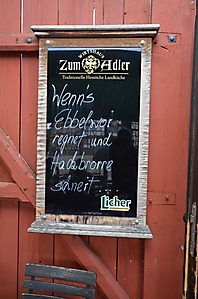 WIRTSHAUS
Zum Adler
Traditionelle Hessische Landküche
Wenn's
Ebbelwoi
regnet und
Hadebrorre
schneit
Licher